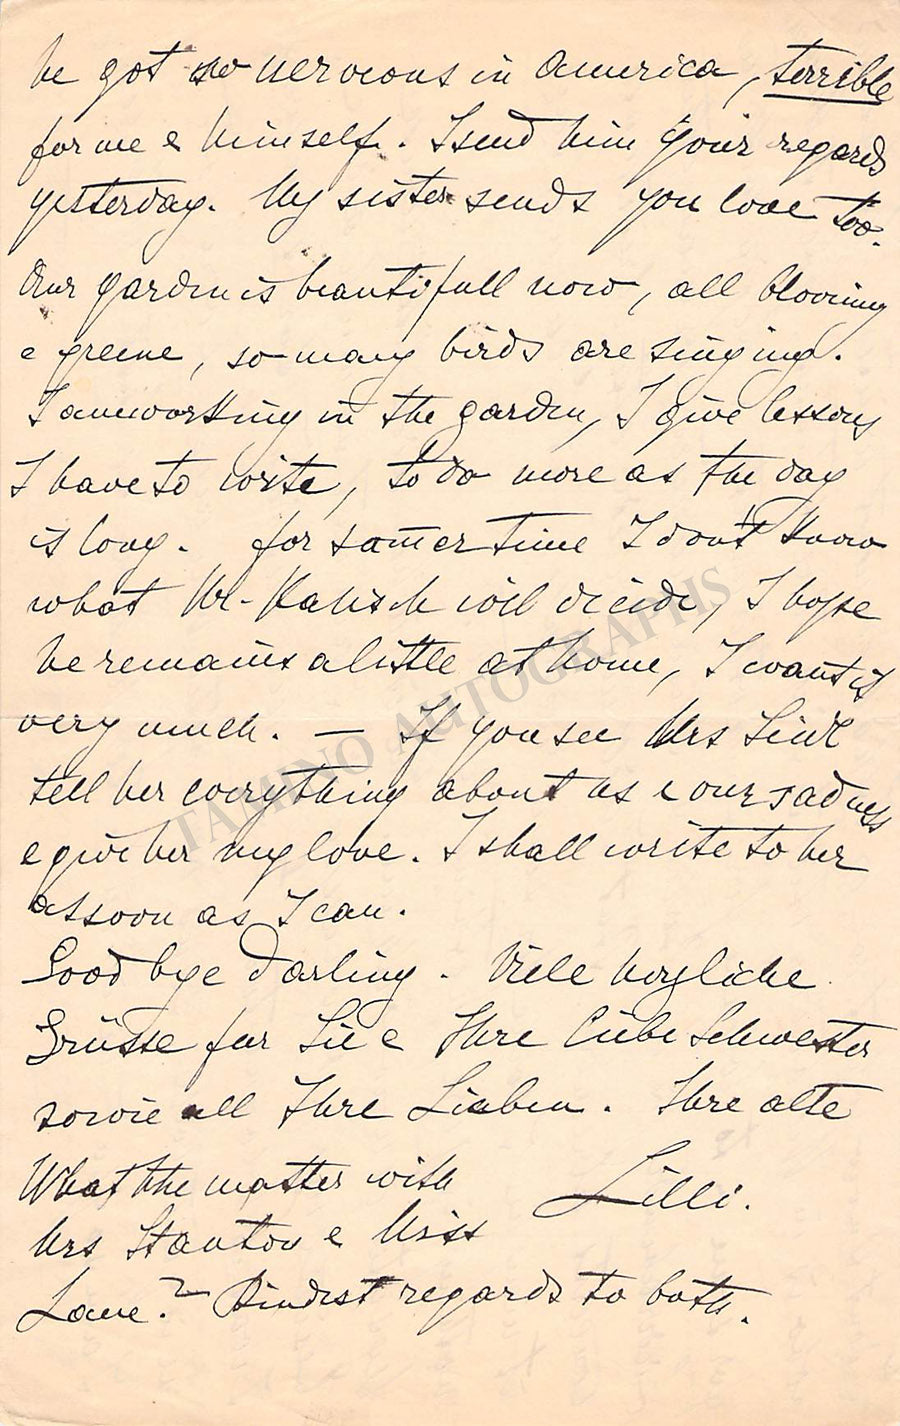 he got so nerveous in America, terrible
for me & himself. I send him your regards
yesterday. My sister sends you love too.
Our garden is beautifull now, all blooming
& greene, so many birds are singing.
I am working in the garden, I give lessons
I have to write, to do more as the day
is long. for samer time I don't know
what Mr. Kalisch will decide, I hope
he remains a little at home, I want it
very much. — If you see Mrs
tell her everything about us & our sadness
& give her my love. I shall write to her
as soon as I can.
Good bye darling. Viele herzliche
Grüsse für Sie & Ihre liebe Schwester
sowie all Ihre Lieben. Ihre alte
Lilli.
What the matter with
Mrs Stanton & Miss
Lane? Kindest regards to both.
TAMINO AUTOGRAPHS